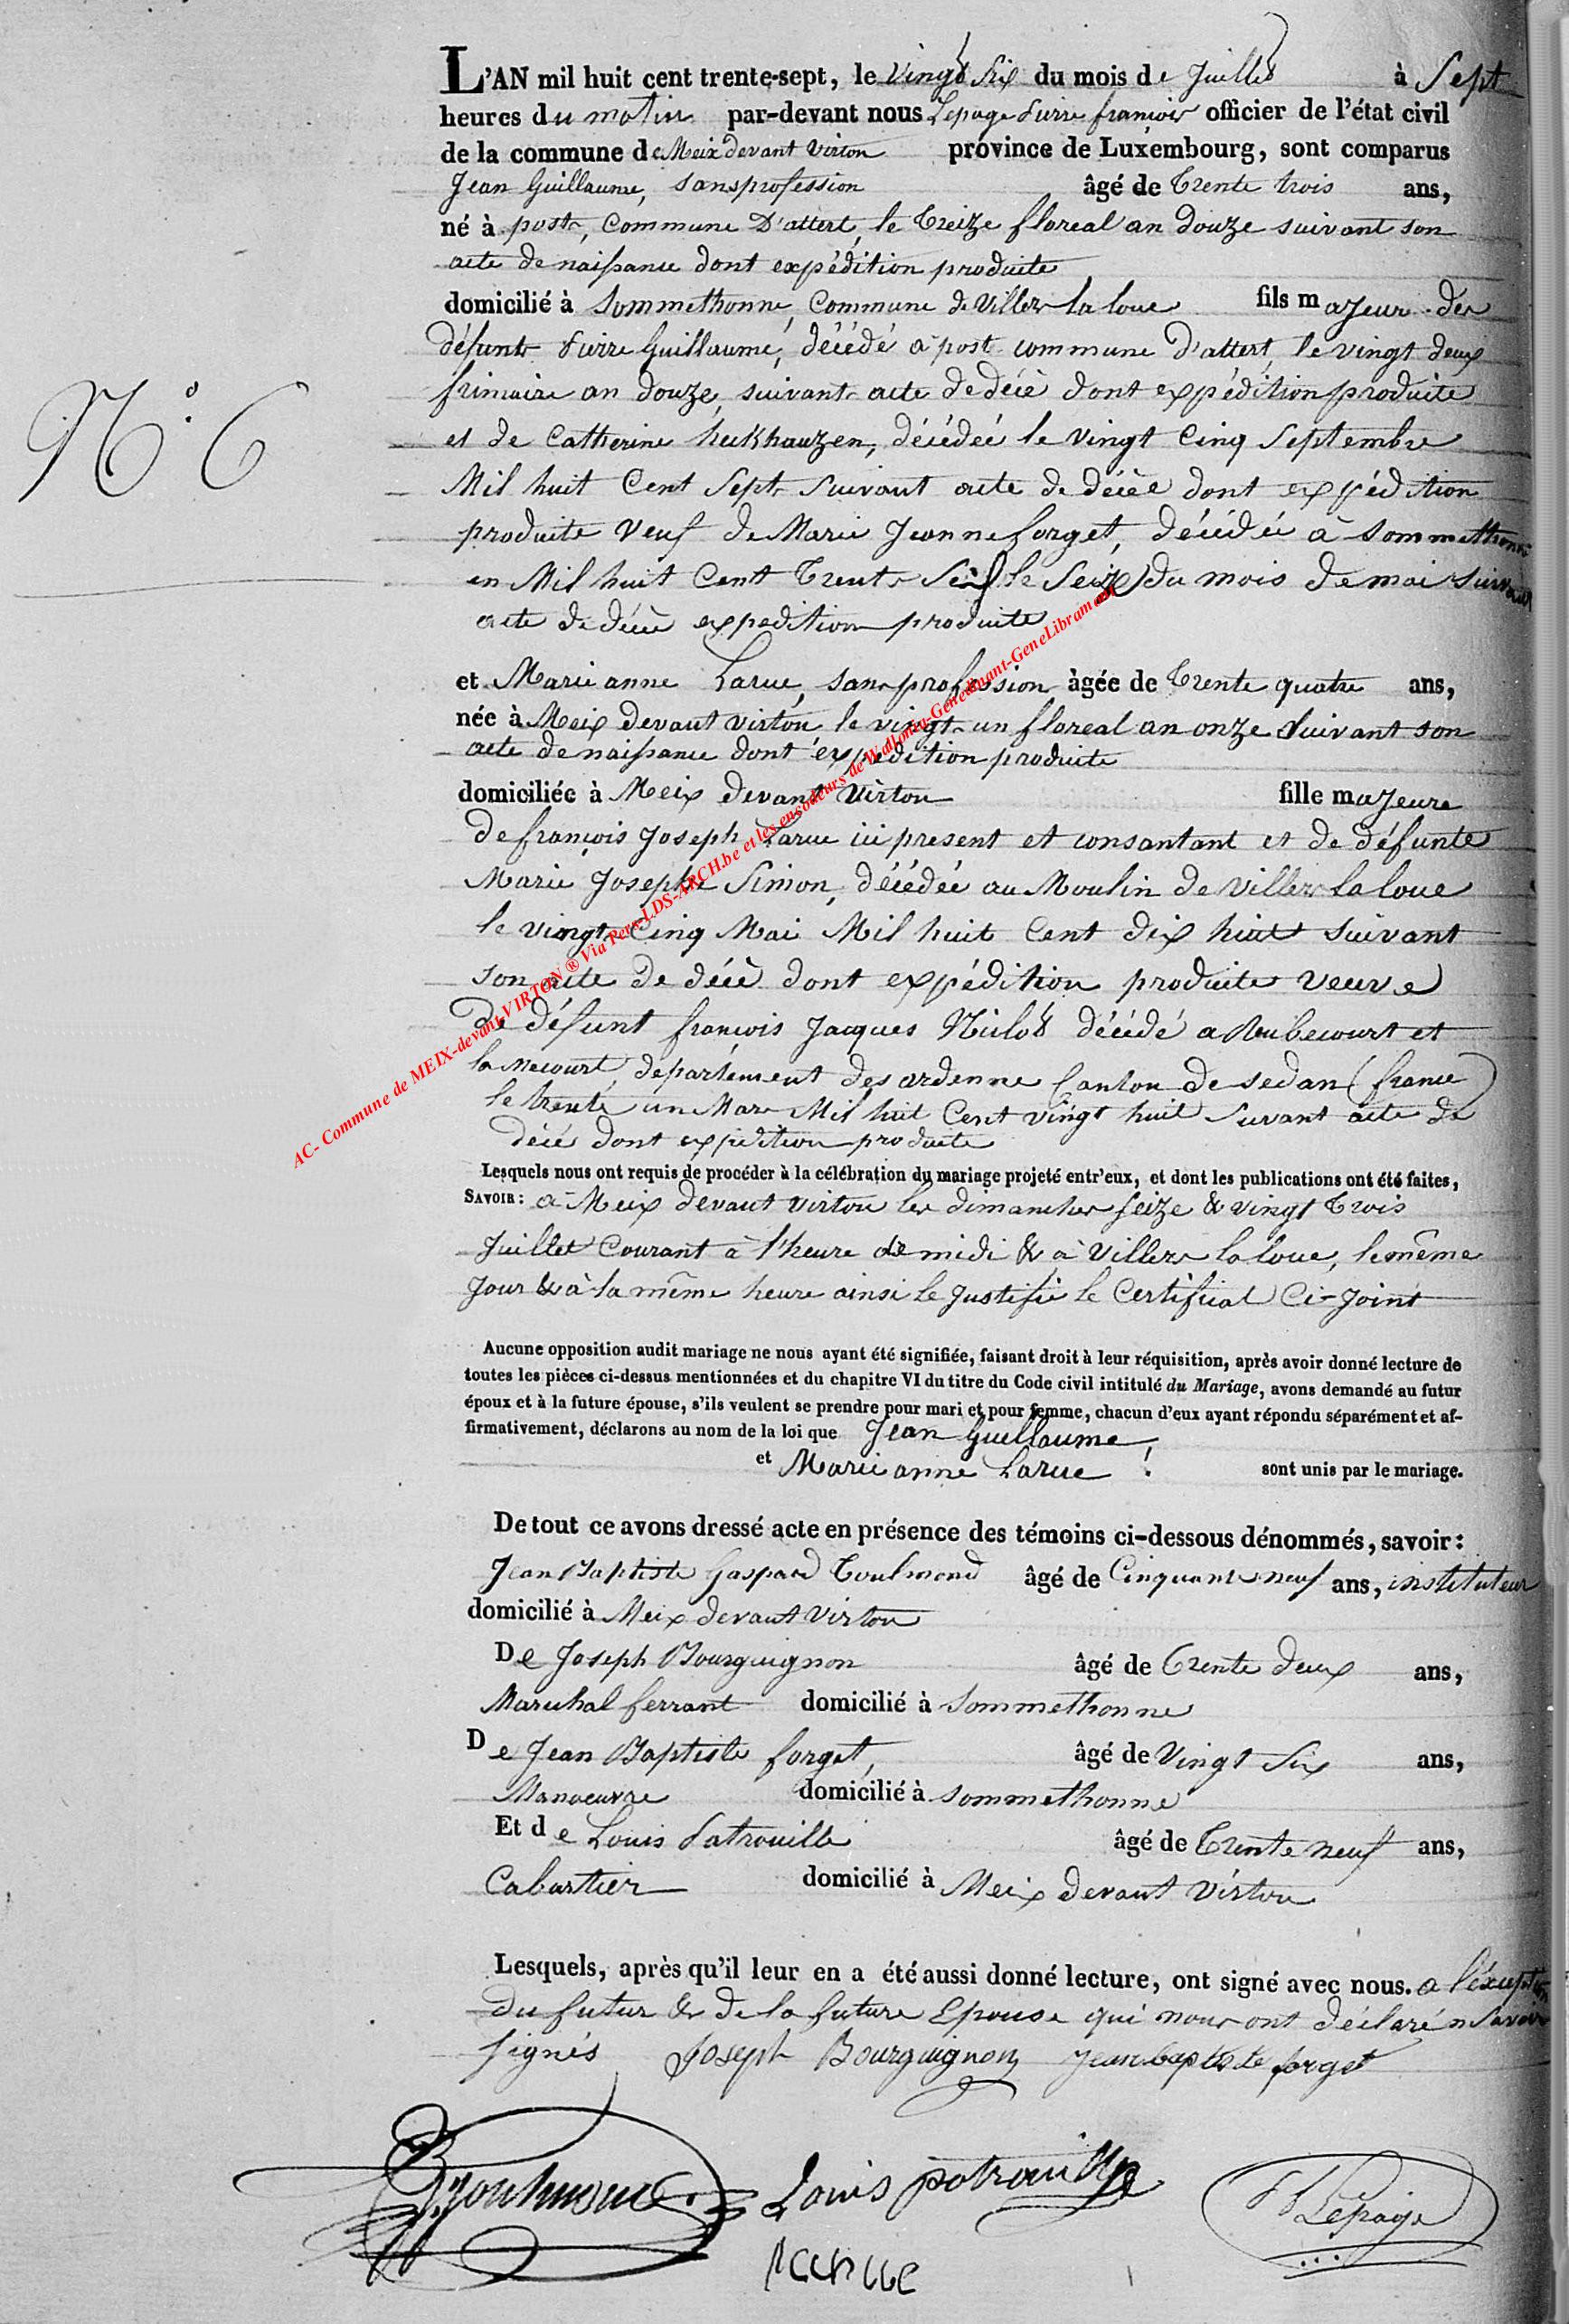 L'AN mil huit cent trente-sept, le Vingt Six du mois de Juillet à Sept
heures du matin par-devant nous Lepage Pierre françois officier de l'état civil
de la commune de Meix devant Virton province de Luxembourg, sont comparus
Jean Guillaume, sans profession âgé de Trente trois ans,
né à post, Commune D'attert, le Treize floreal an douze suivant son
acte de naissance dont expédition produite
domicilié à Sommethonne, Commune de Villers la loue fils majeur des
défunts Pierre Guillaume, décédé à post commune d'attert, le vingt deux
frimaire an douze, suivant acte de décè dont expédition produite
N° 6
et de Catherine heckhauzen, décédeé le vingt Cinq Septembre
Mil huit Cent Sept Suivant acte de décèe dont expédition
produite Veuf de Marie Jeanne forget, décédée à Sommethonne
en Mil huit Cent Trente Six le Seize du mois de mai suivant
acte de décè expedition produite
et Marie anne Larue, sans profession âgée de Trente quatre ans,
née à Meix devant virton le vingt-un floreal an onze Suivant son
acte de naissance dont expédition produite
domiciliée à Meix devant Virton fille majeure
de françois Joseph Larue ici present et consantant et de défunte
Marie Josephe Simon, décédée au Moulin de Villers la loue
le vingt Cinq Mai Mil huit Cent dix huit suivant
son acte de décè dont expédition produite veuve
De défunt françois Jacques décédé a Rubecourt et
lamecourt, département des ardenne Canton de sedan (france)
le trente un Mars Mil huit Cent vingt huit suivant acte de
décé dont expédition produite
AC- Commune de MEIX-devant-VIRTON ® Via Pers-LDS-ARCH.be et les encodeurs de Wallonia-Genedinant-GeneLibramont
Lesquels nous ont requis de procéder à la célébration du mariage projeté entr'eux, et dont les publications ont été faites,
SAVOIR: à Meix devant virton les dimanches seize & vingt Trois
Juillet Courant à l'heure de midi & à Villers la loue, le même
Jour & à la même heure ainsi le Justifie le Certificat Ci-Joint
Aucune opposition audit mariage ne nous ayant été signifiée, faisant droit à leur réquisition, après avoir donné lecture de
toutes les pièces ci-dessus mentionnées et du chapitre VI du titre du Code civil intitulé du Mariage, avons demandé au futur
époux et à la future épouse, s'ils veulent se prendre pour mari et pour femme, chacun d'eux ayant répondu séparément et af-
firmativement, déclarons au nom de la loi que Jean Guillaume
et Marie anne Larue sont unis par le mariage.
De tout ce avons dressé acte en présence des témoins ci-dessous dénommés, savoir:
Jean Baptiste Gaspard Toulmond âgé de Cinquante neuf ans, instituteur
domicilié à Meix devant Virton
De Joseph Bourguignon âgé de Trente deux ans,
Marechal ferrant domicilié à Sommethonne
De Jean Baptiste forget, âgé de Vingt Six ans,
Manoeuvre domicilié à Sommethonne
Et de Louis Patrouille âgé de Trente neuf ans,
Cabartier domicilié à Meix devant Virton
Lesquels, après qu'il leur en a été aussi donné lecture, ont signé avec nous. a l'éxception
du futur & de la future Epouse qui nous ont déclaré n Savoir
signés Joseph Bourguignon Jean baptiste forget
Toulmond Louis patrouille Lepage